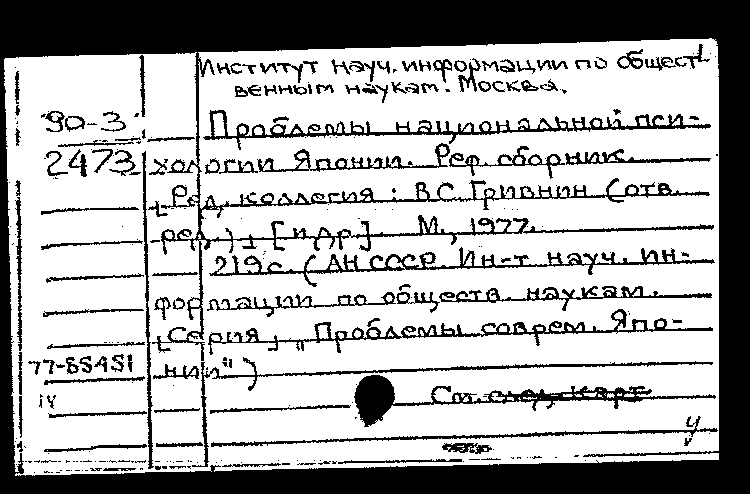 Институт науч. информации по общест-
венным наукам. Москва.
90-3
2473
Проблемы национальной пси-
хологии Японии. Реф. сборник.
[Ред. коллегия: В.С. Гривнин (отв.
ред.)] [и др.]. М., 1977.
219 с. (АН СССР. Ин-т науч. ин-
формации по обществ. наукам.
[Серия] „Проблемы соврем. Япо-
нии")
77-85451
IV
См. след. карт
У